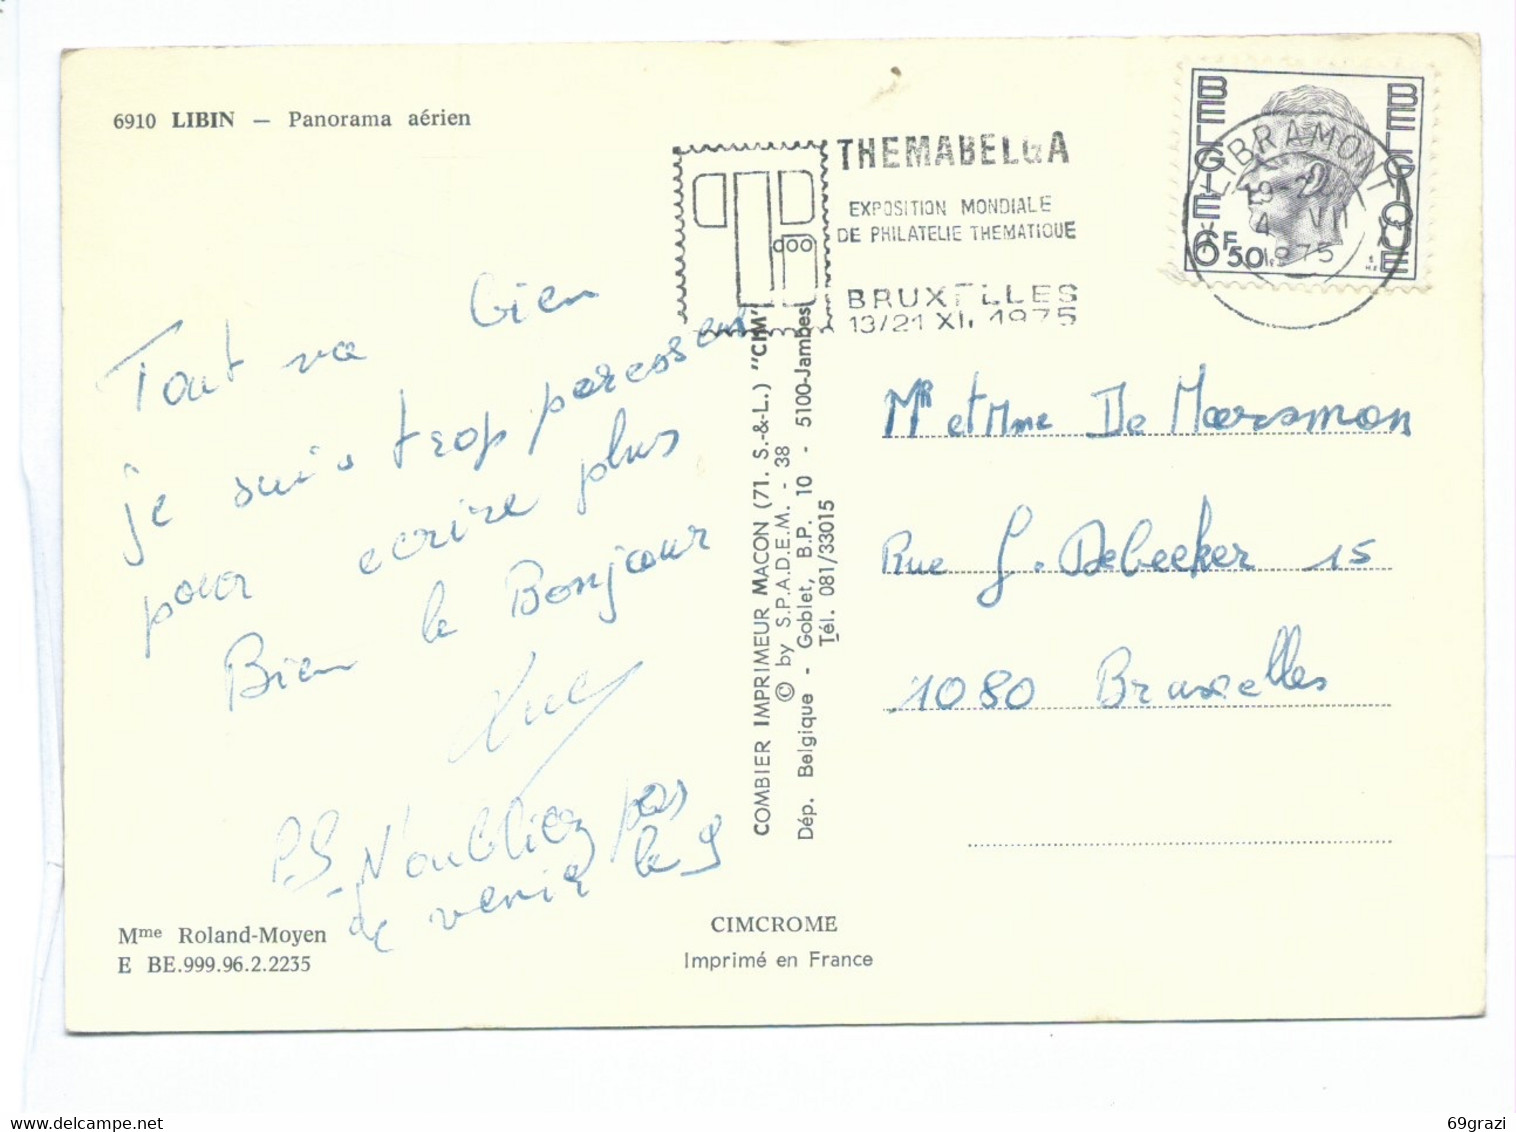 6910 LIBIN — Panorama aérien
THEMABELGA
EXPOSITION MONDIALE
DE PHILATELIE THEMATIQUE
BRUXELLES
13/21 XI. 1975
BELGIE BELGIQUE
6F50
LIBRAMONT
19-20
4 VII
1975
Tout va bien
je suis trop paresseux
pour ecrire plus
Bien le Bonjour
P.S N'oubliez pas
de venir le 9
Mr et Mme De
Rue G. Debecker 15
1080 Bruxelles
COMBIER IMPRIMEUR MACON (71. S.-&-L.) "CIM"
© by S.P.A.D.E.M. - 38
Dép. Belgique - Goblet, B.P. 10 - 5100-Jambes
Tél. 081/33015
Mme Roland-Moyen
E BE.999.96.2.2235
CIMCROME
Imprimé en France
69grazi